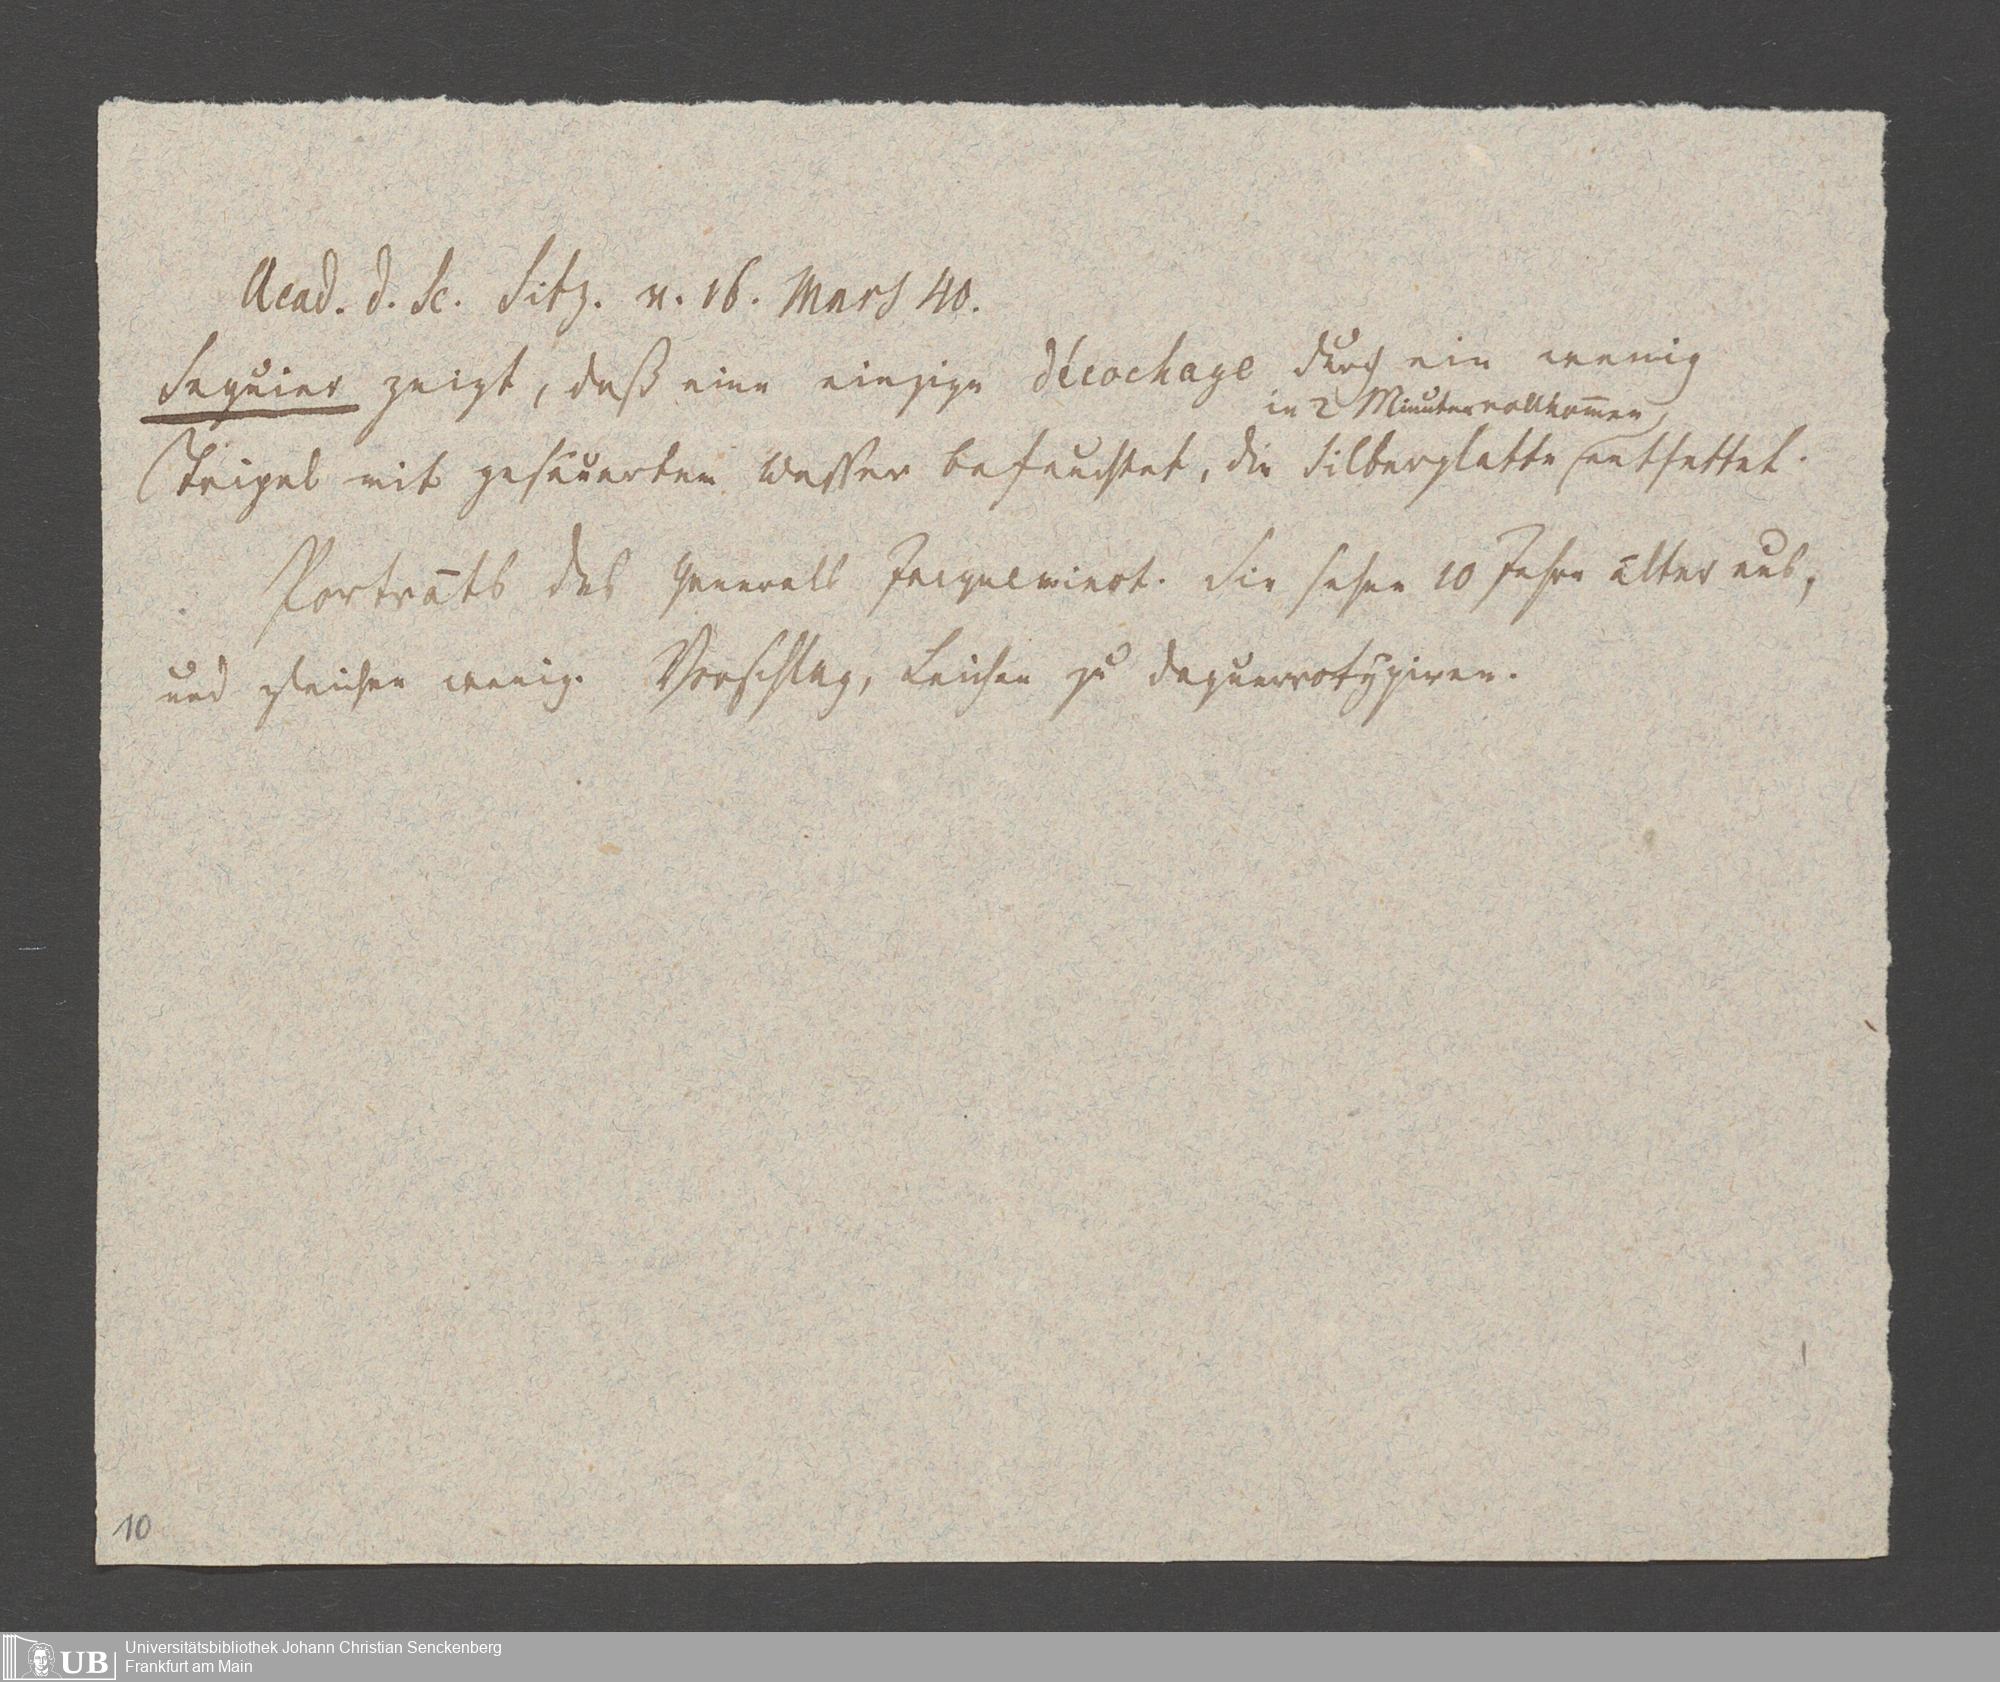 Acad. d. Sc. Sitz. v. 16. Mars 40.
Seguier zeigt, daß eine einzige décochage durch ein wenig
in 2 Minuten vollkom̅en
Tripel mit gesäuertem Wasser befeuchtet, die Silberplatte entfettet.
Portraits des Generals Jacqueminot. Sie sehen 10 Jahre älter aus,
und gleichen wenig. Vorschlag, Leichen zu daguerrotypiren.
10
UB
Universitätsbibliothek Johann Christian Senckenberg
Frankfurt am Main